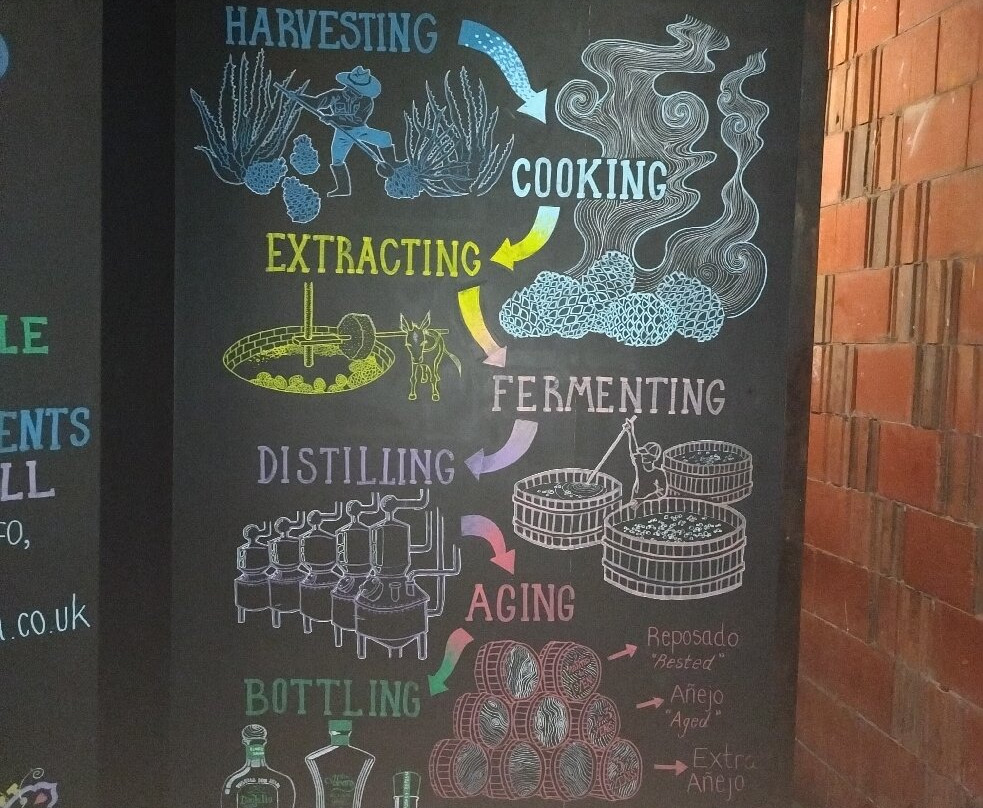 HARVESTING
COOKING
EXTRACTING
FERMENTING
DISTILLING
AGING
Reposado
"Rested"
Añejo
"Aged"
Extra
Añejo
BOTTLING
LE
ENTS
LL
FO,
.co.uk